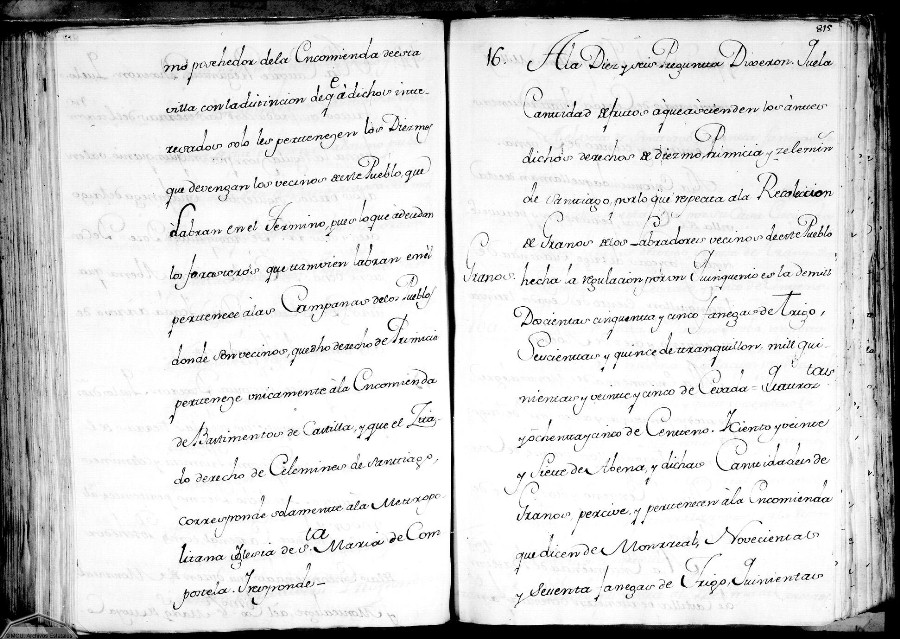 mo pohehedor dela Encomienda de esta
villa, con la distincion de q.e à dichos inte-
resados solo les pertenezen los Diezmos
que devengan los vecinos de este Pueblo, que
labran en el Termino, pues lo que adeudan
los forasteros que tamvien labran en el
pertenece à las Campanas de los Pueblos
donde son vecinos, que dho derecho de Primicia
perteneze unicamente à la Encomienda
de Bastimentos de Castilla, y que el Zita-
do derecho de Celemines de Santiago,
corresponde solamente ala Metropo
litana Iglesia de S.ta Maria de Com
postela. Y responde=
815
16. A la Diez y seis Pregunta Dixeron. Que la
Cantidad de frutos aque ascienden los ânueos
dichos derechos de diezmo, Primicia y zelemin
de Santiago, por lo que respecta ala Recoleccion
de Granos de los Labradores vecinos de este Pueblo
Granos. hecha la regulacion por un Quinquenio es la de mill
Doscientas cinquenta y cinco fanegas de Trigo,
Seiscientas y quince de tranquillon. mill qui-
nientas y veinte y cinco de Cevada= Quatroz.tas
y ochenta y cinco de Centeno. Y Ciento y veinte
y Siete de Abena, y dichas Cantidades de
Granos, percive, y pertenecen à la Encomienda
que dicen de Monrreal, Novecientas
y Setenta fanegas de Trigo, Quinientas
© MCU. Archivos Estatales